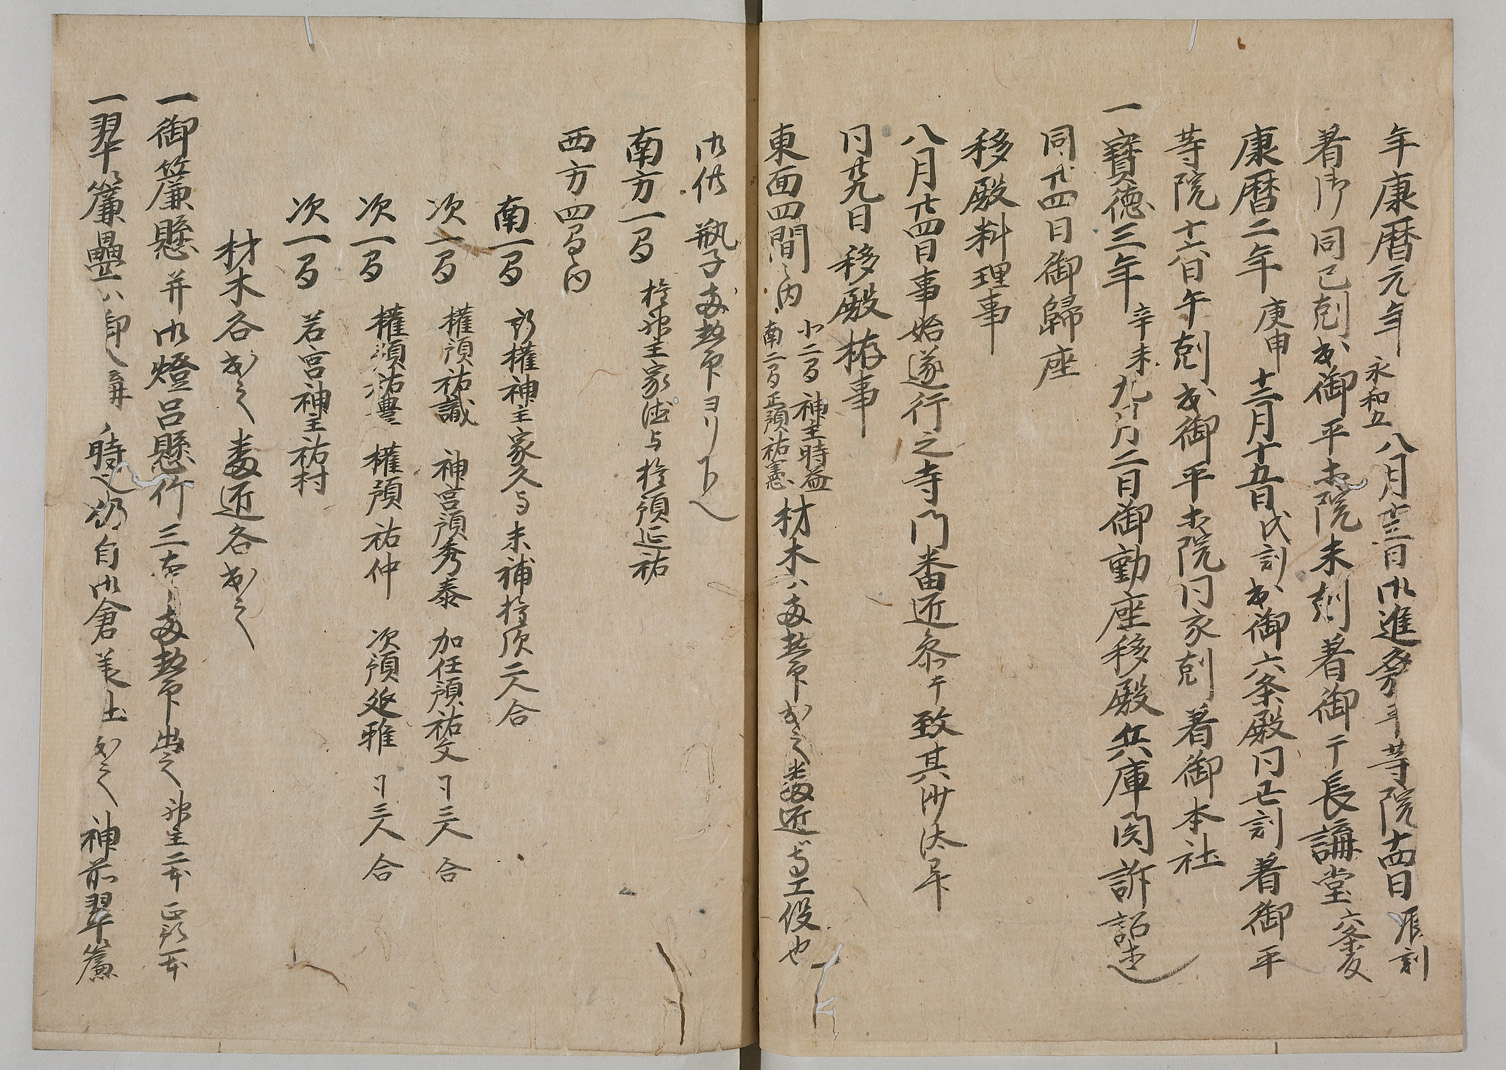 年康暦元年永和五八月十三日御進発平等院十四日辰刻
着御同巳剋出御平等院未刻着御于長講堂六条殿
康暦二年庚申十二月十五日戌刻出御六条殿同丑刻着御平
等院十六日午剋出御平等院同亥剋着御本社
一寶徳三年辛未九月二日御動座移殿兵庫関訴詔也
同廿四日御歸座
移殿料理事
八月廿四日事始遂行之寺門番匠参申致其沙汰畢
同廿九日移殿棟事
東面四間之内北二間神主時益南二間正預祐憲材木ハ両惣官出之番匠寺工役也
御供瓶子両惣官ヨリ下之
南方一間権神主家徳与権預延祐
西方四間内
南一間新権神主家久与未補権預二人合
次一間権預祐識 神宮預秀泰 加任預祐文 已上三人合
次一間権預祐豊 權預祐仲 次預延雅 已上三人合
次一間若宮神主祐村
材木各出之番匠各出之
一御簾懸并御燈呂懸竹三本両惣官出之神主二本正預一本
一翠簾疊ハ御入 時之 自御倉 出之神前翠簾